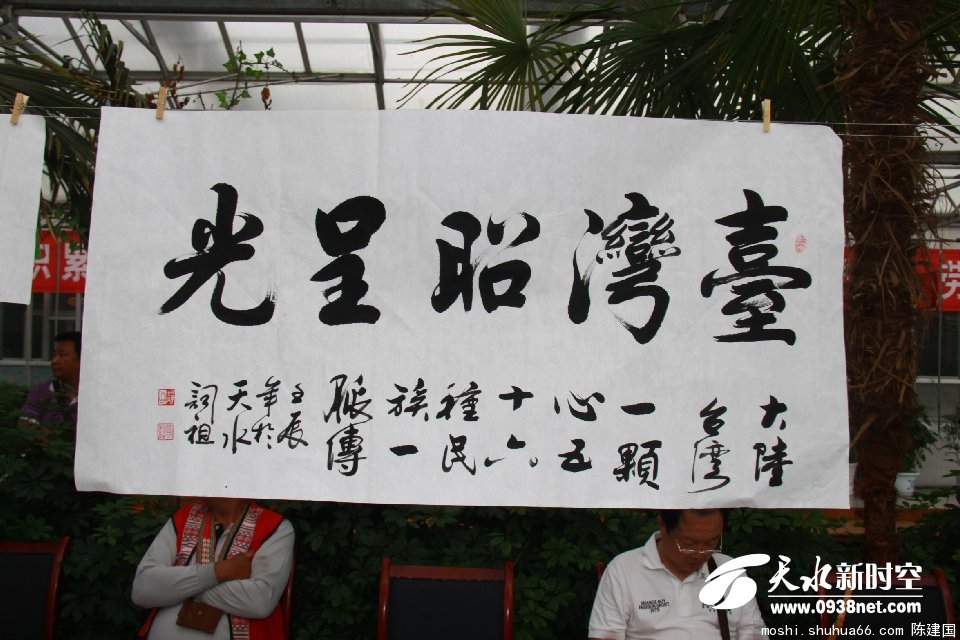 臺灣昭呈光
大陸
台灣
一顆
心五
十六
種民
族一
脈傳
壬辰
年於
天水
詞祖
识累
劳
天水新时空
www.0938net.com
moshi.shuhua66.com 陈建国